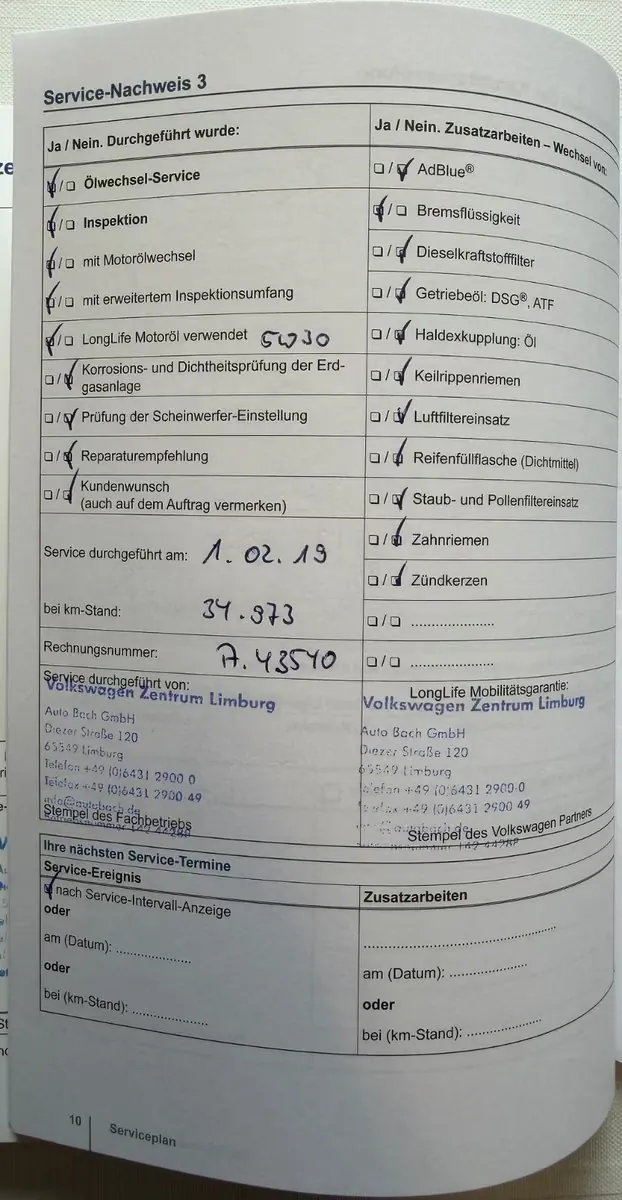 Service-Nachweis 3
Ja / Nein. Durchgeführt wurde:
Ölwechsel-Service
Inspektion
mit Motorölwechsel
mit erweitertem Inspektionsumfang
LongLife Motoröl verwendet 5W30
Korrosions- und Dichtheitsprüfung der Erd-
gasanlage
Prüfung der Scheinwerfer-Einstellung
Reparaturempfehlung
Kundenwunsch
(auch auf dem Auftrag vermerken)
Service durchgeführt am: 1.02.19
bei km-Stand: 34.973
Rechnungsnummer: A.43540
Service durchgeführt von:
Volkswagen Zentrum Limburg
Auto Bach GmbH
Diezer Straße 120
65549 Limburg
Telefon +49 (0)6431 2900 0
Telefax +49 (0)6431 2900 49
info@autobach.de
Stempel des Fachbetriebs
Ja / Nein. Zusatzarbeiten – Wechsel von:
AdBlue®
Bremsflüssigkeit
Dieselkraftstofffilter
Getriebeöl: DSG®, ATF
Haldexkupplung: Öl
Keilrippenriemen
Luftfiltereinsatz
Reifenfüllflasche (Dichtmittel)
Staub- und Pollenfiltereinsatz
Zahnriemen
Zündkerzen
LongLife Mobilitätsgarantie:
Volkswagen Zentrum Limburg
Auto Bach GmbH
Diezer Straße 120
65549 Limburg
Telefon +49 (0)6431 2900-0
Telefax +49 (0)6431 2900 49
Stempel des Volkswagen Partners
Ihre nächsten Service-Termine
Service-Ereignis
nach Service-Intervall-Anzeige
oder
am (Datum): ....................
oder
bei (km-Stand): ....................
Zusatzarbeiten
am (Datum): ....................
oder
bei (km-Stand): ....................
10
Serviceplan